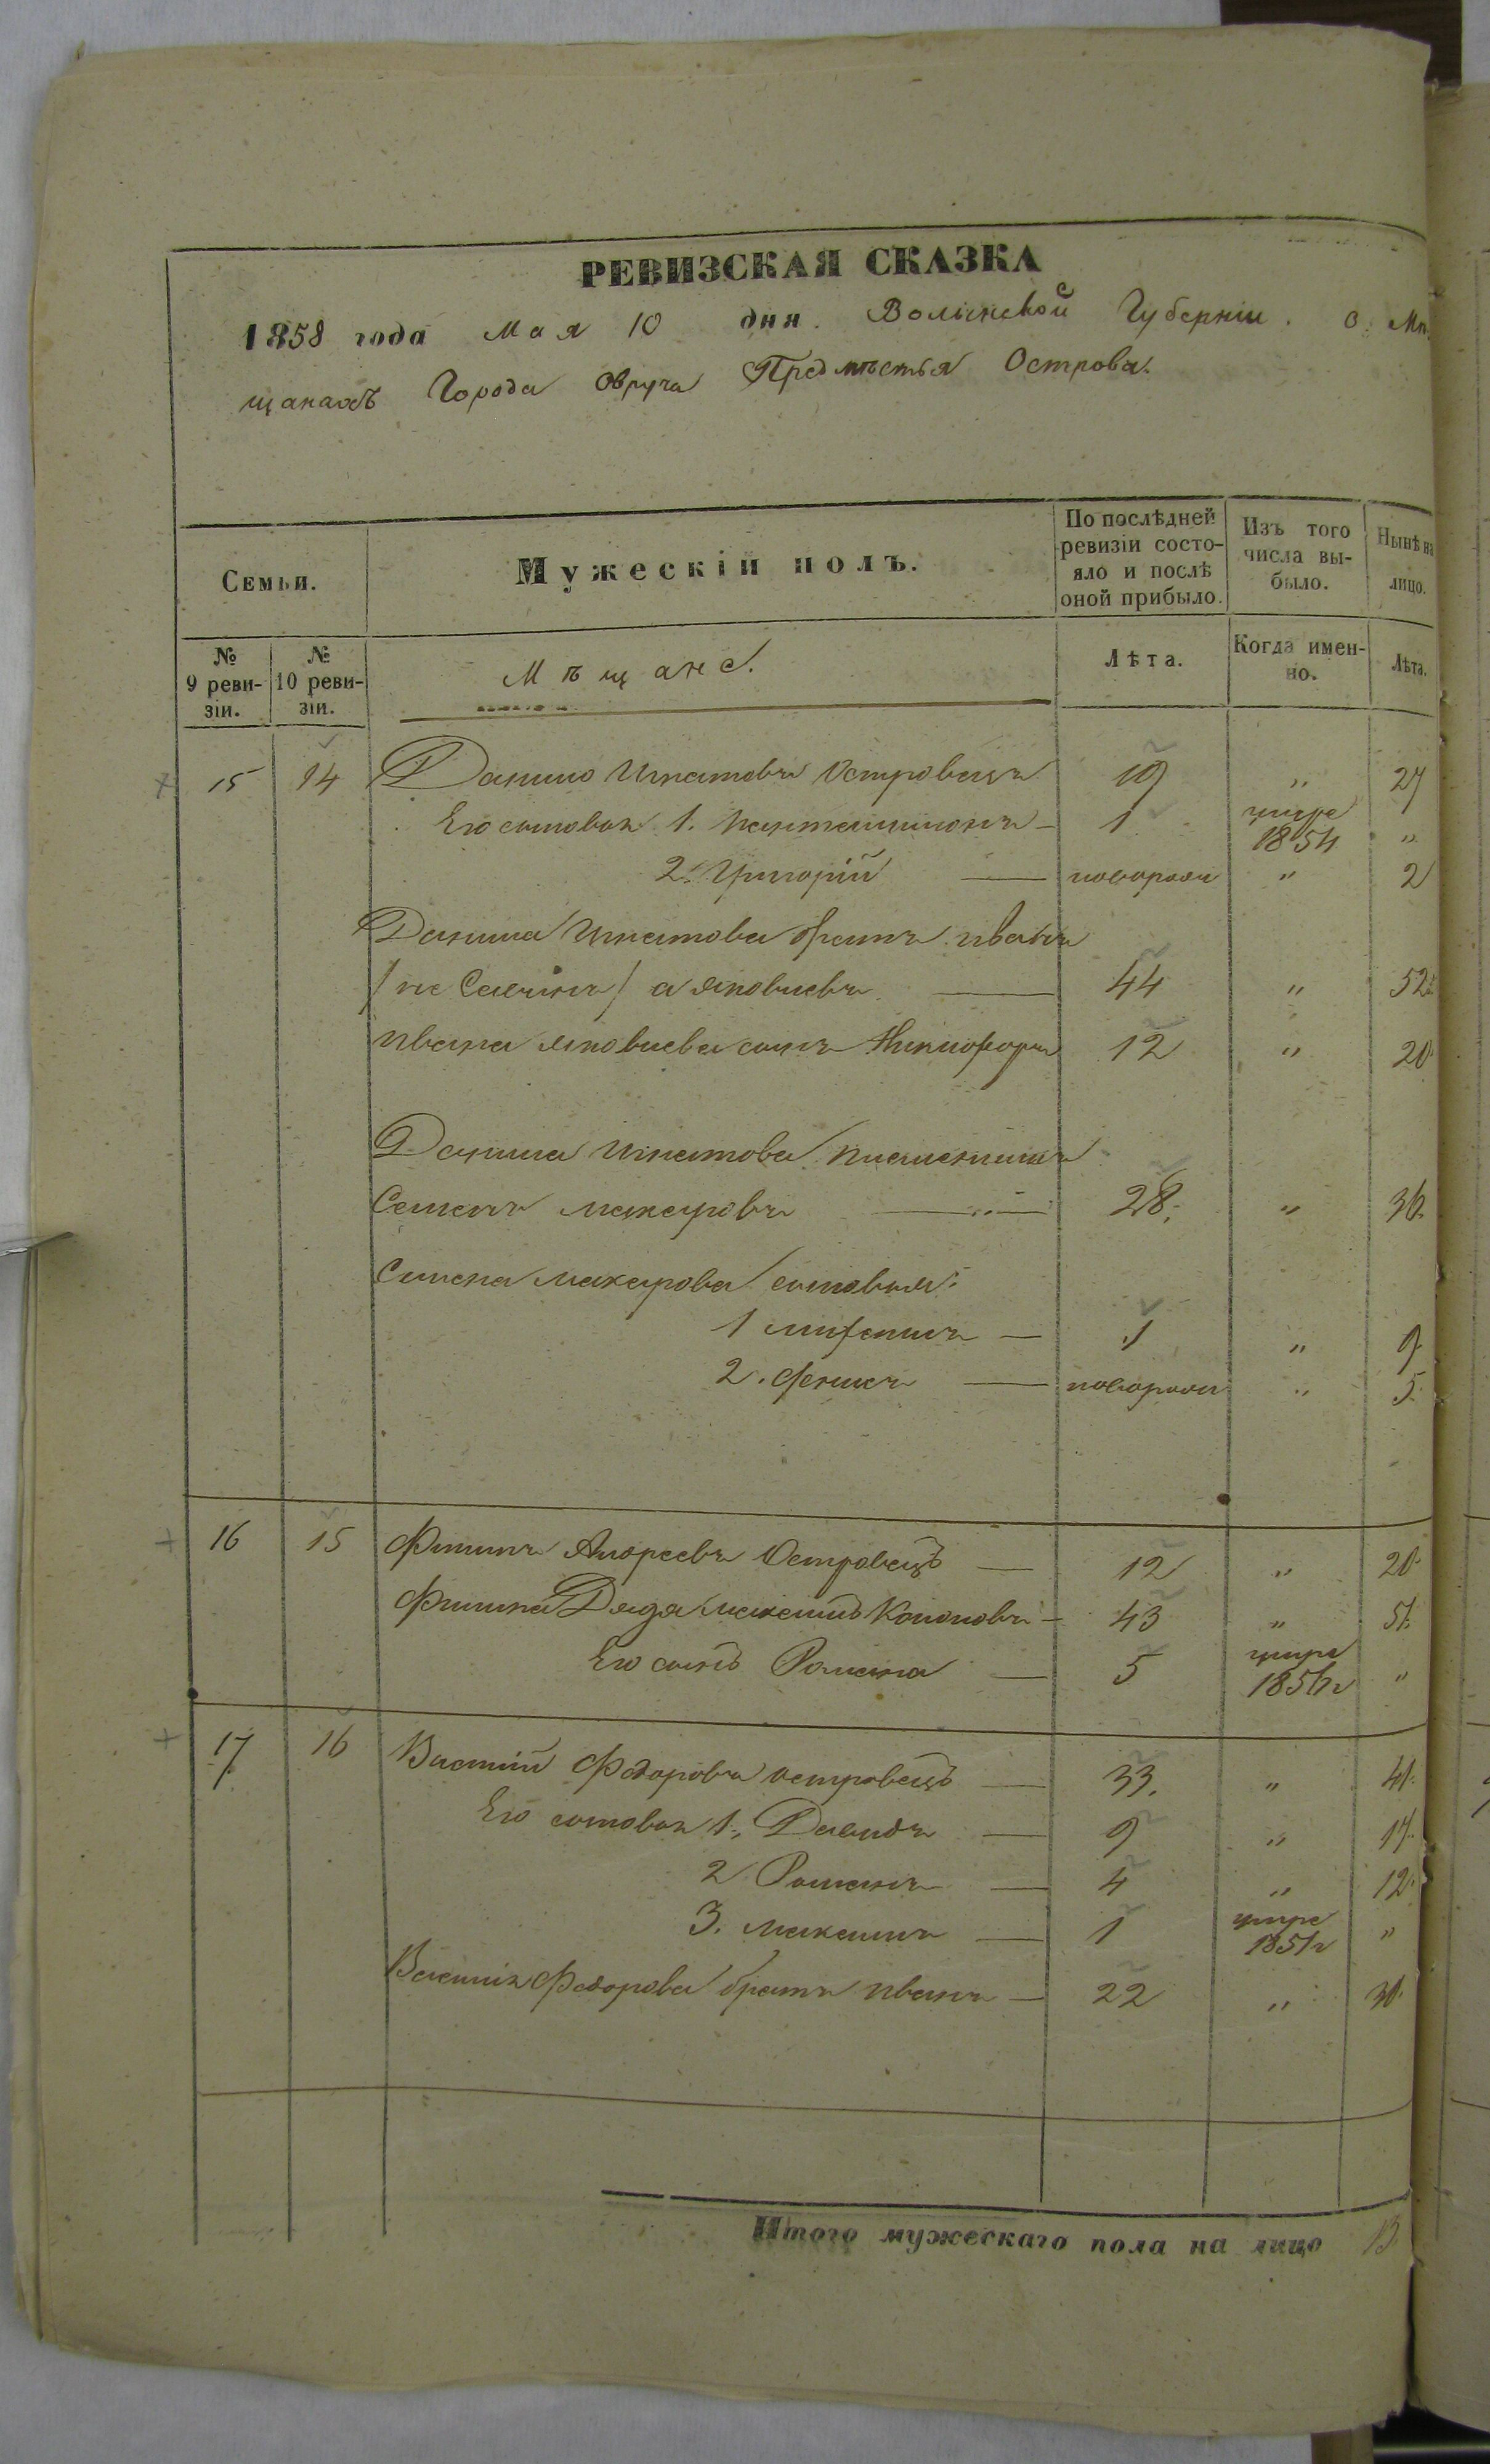 РЕВИЗСКАЯ СКАЗКА
1858 года Мая 10 дня. Волынской Губерніи. О Мѣ
щанахъ Города Овруча Предмѣстья Острова.
Семьи.
Мужескій полъ.
По послѣдней ревизіи состояло и послѣ оной прибыло.
Изъ того числа выбыло.
Нынѣ на лицо.
№ 9 ревизіи.
№ 10 ревизіи.
Мѣщане.
Лѣта.
Когда именно.
Лѣта.
15 14 Данило Игнатовъ Островецъ 19 " 27
Его сыновья 1. Пантелимонъ - 1 умре 1854 "
2. Григорій — новорожд " 2
Данила Игнатова братъ Иванъ
/не / а Яковлевъ — 44 " 52
Ивана Яковлева сынъ Никифоръ 12 " 20
Данила Игнатова племянникъ
Семенъ Макаровъ — 28. " 36.
Семена Макарова сыновья:
1 — 1 " 9
2. — новорожд " 5.
16 15 Филипъ Андреевъ Островецъ — 12 " 20
Филипа Дядя Максимъ Кононовъ - 43 " 51.
Его сынъ Романъ — 5 умре "
17 16 Василій Федоровъ Островецъ — 33. " 41.
Его сыновья 1. Давидъ — 9 " 17.
2 Романъ — 4 " 12.
3. Максимъ — 1 умре 1851г "
Василія Федорова братъ Иванъ — 22 " 30.
Итого мужескаго пола на лицо 13